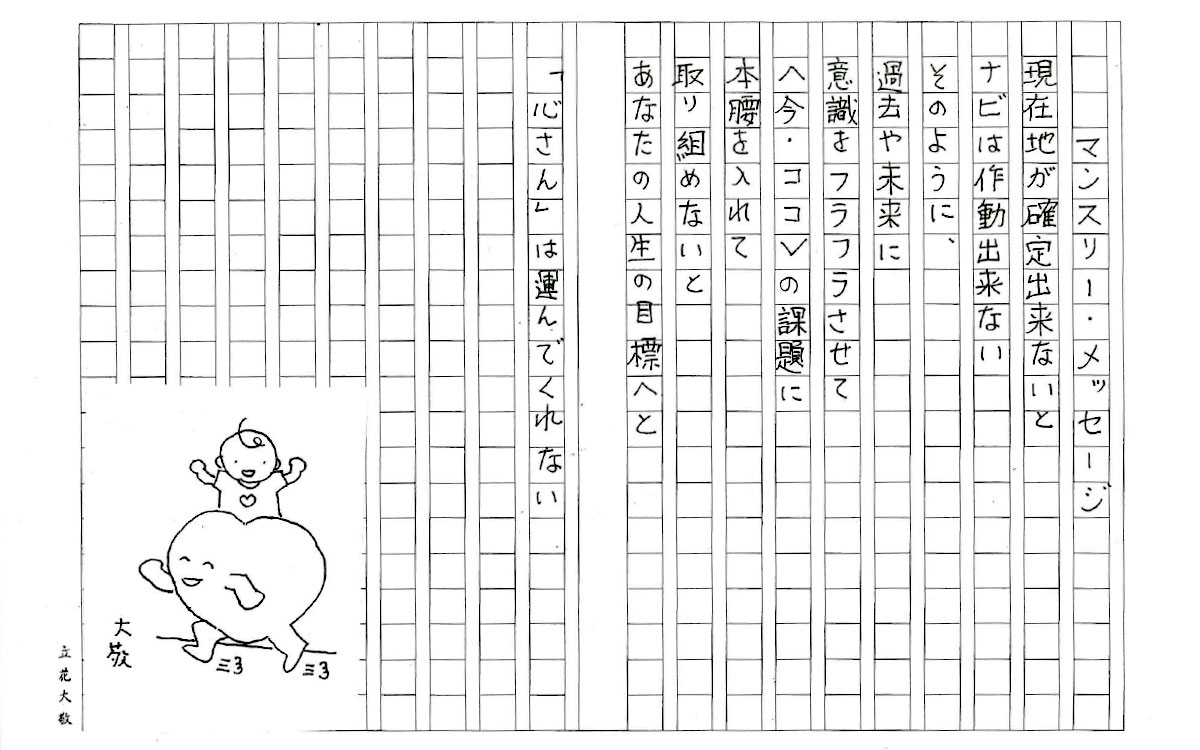 マンスリー・メッセージ
現在地が確定出来ないと
ナビは作動出来ない
そのように、
過去や未来に
意識をフラフラさせて
〈今・ココ〉の課題に
本腰を入れて
取り組めないと
あなたの人生の目標へと
「心さん」は運んでくれない
大敬
立花大敬